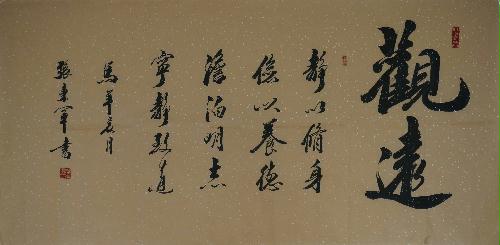 觀遠
靜以脩身
儉以養德
澹泊明志
寧靜致遠
馬年辰月
張東軍書